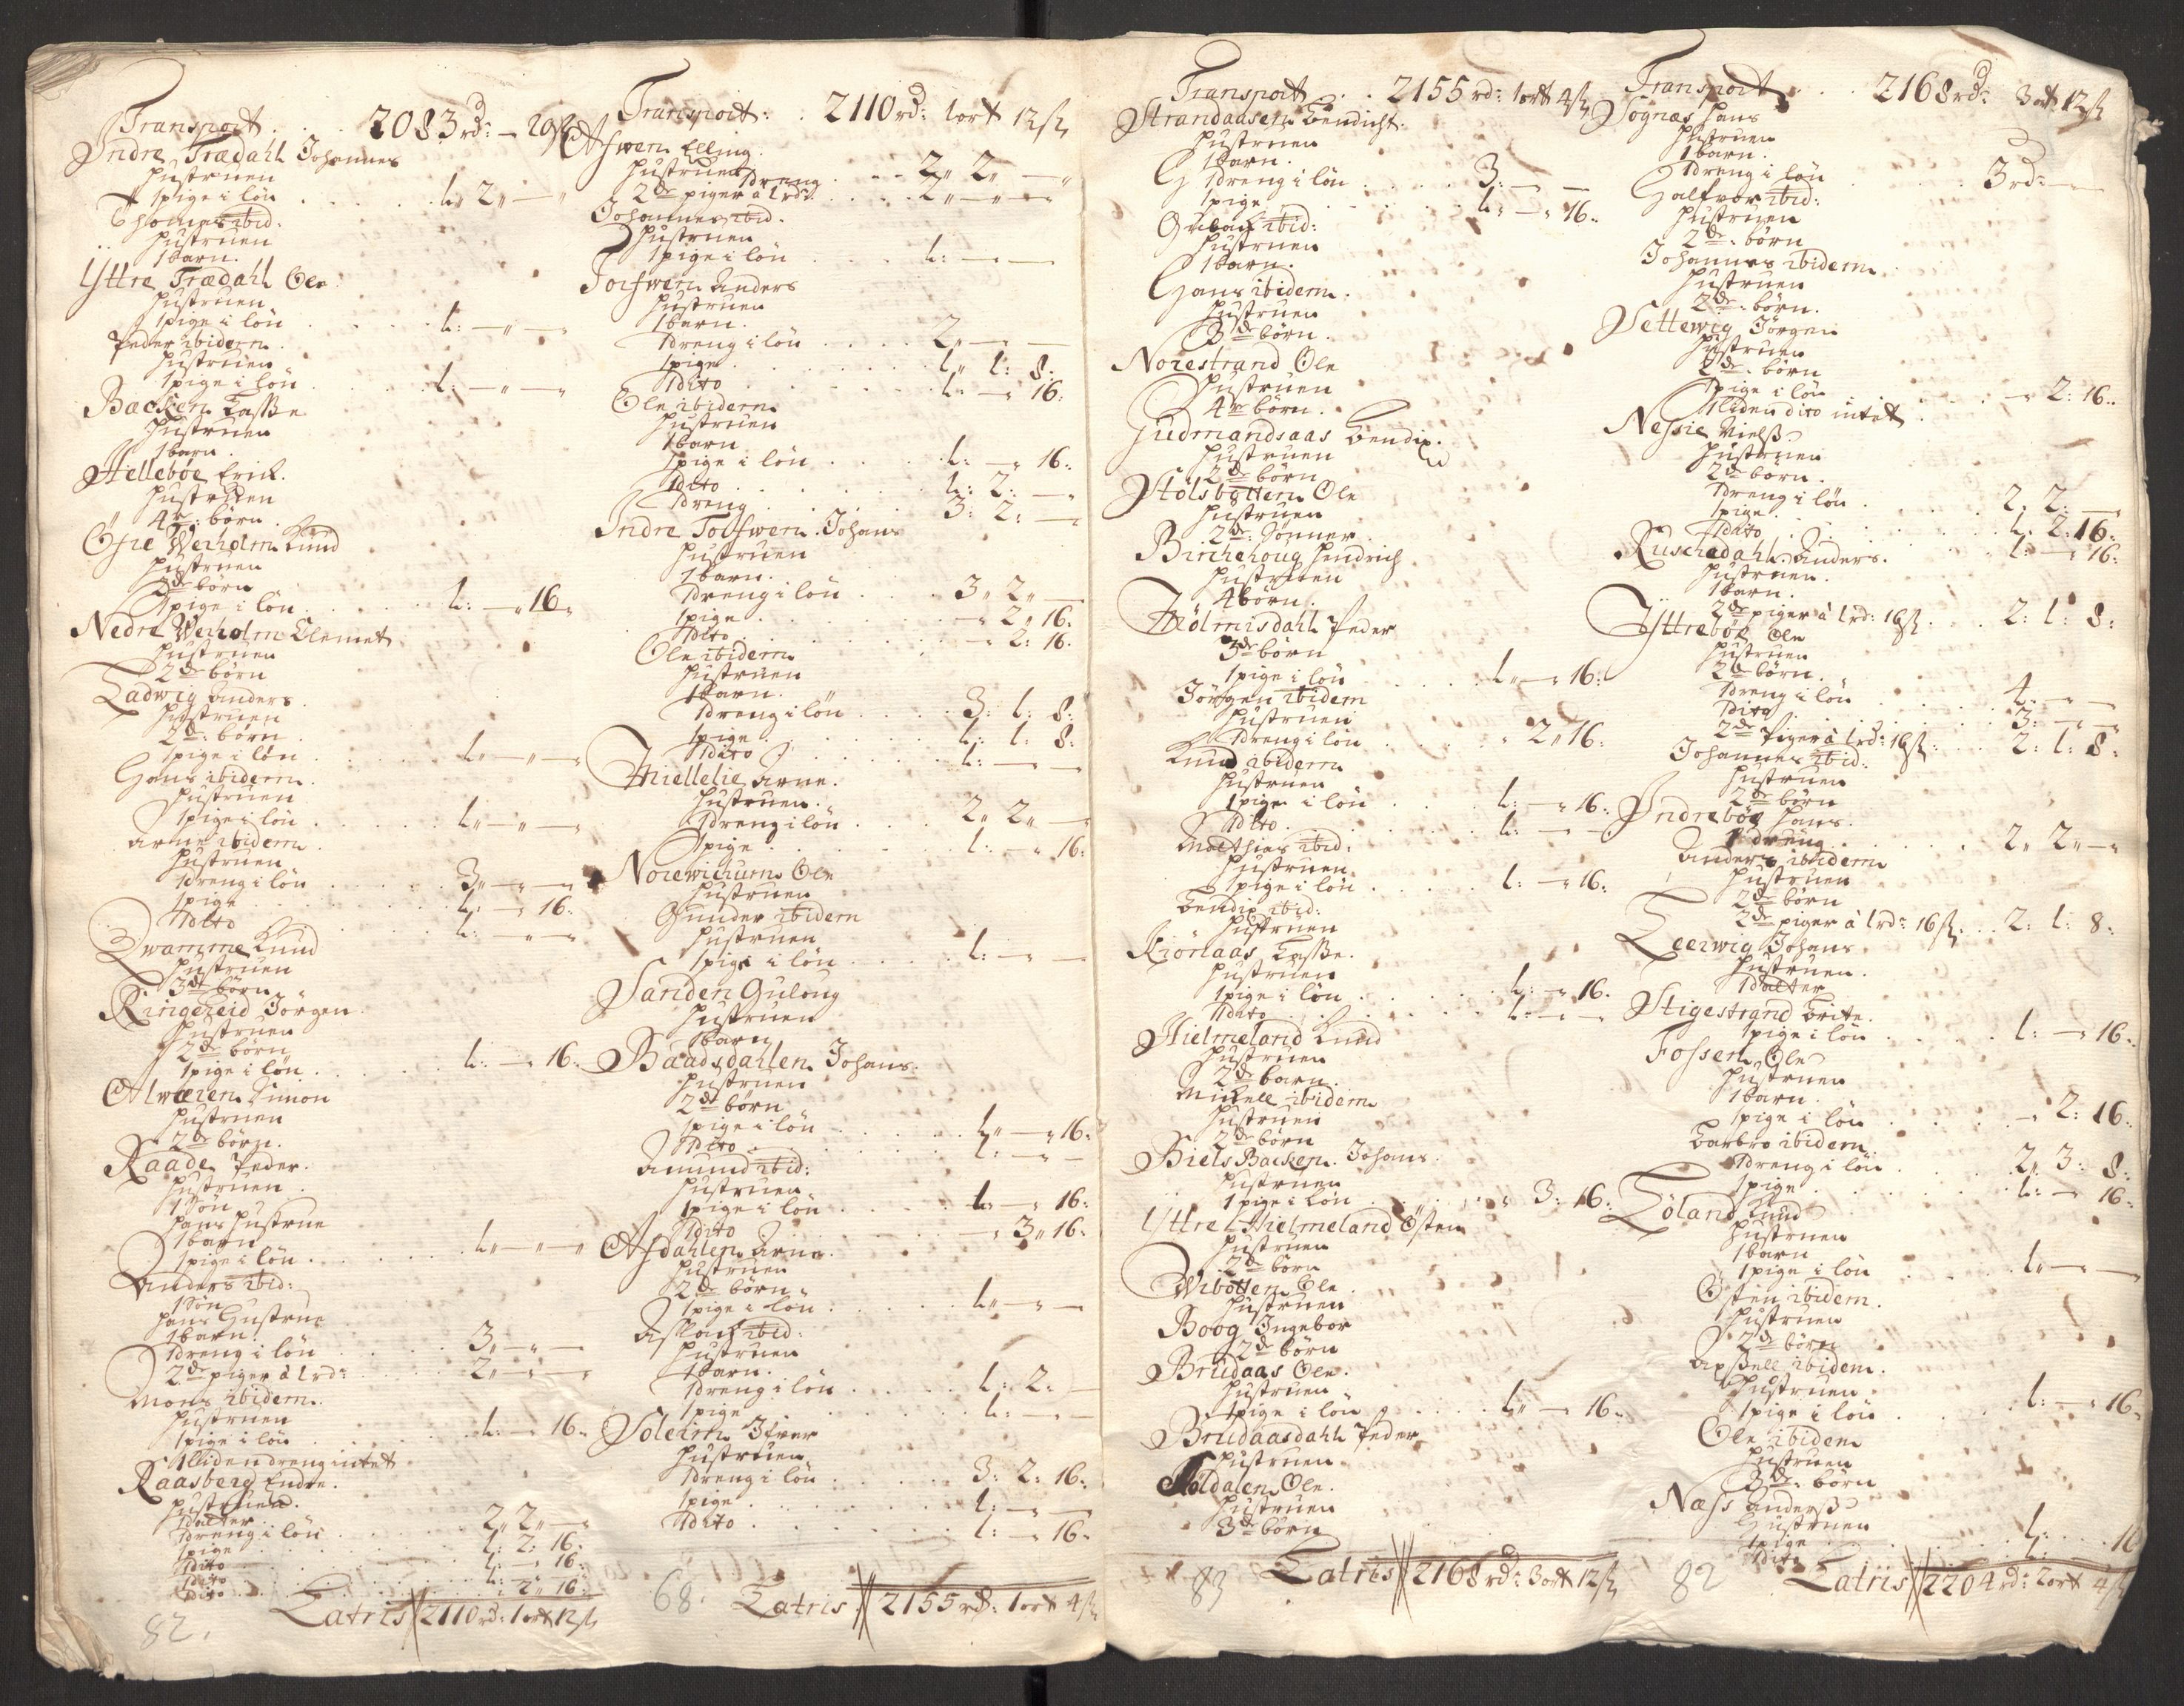 Transport . . . 2083 rd: — 20ß
Indre Trædahl Johannes
Hustruen
1 pige i lön . . . 1„ 2„ —
Thomes ibid:
Hustruen
1 barn.
Yttre Trædahl Ole
Hustruen
1 pige i lön . . . 1: —„—
Peder ibidem
Hustruen
1 pige i lön . . . 1: —„—
Backen Lasse
Hustruen
1 barn.
Hellebøe Erik.
Hustruen
4re: börn
Öfre Werholm Knud
Hustruen
2de börn
1 pige i lön . . . 1: —„ 16„
Nedre Werholm Clemet
Hustruen
2de börn
Ladwig Anders.
Hustruen
2de: börn
1 pige i lön . . . 1„ —„—
Hans ibidem.
Hustruen
1 pige i lön . . . 1„ —„—
Arne ibidem
Hustruen
1 dreng i lön . . . 3„ —„—
1 pige . . . 1: —„ 16:
1 dito . . . 1: —„—
Qwamme Knud
Hustruen
3de börn
Ringereid Jörgen
Hustruen
2de börn
1 pige i lön . . . 1: —„ 16:
Alwæren Simon
Hustruen
2de börn.
Raade Peder.
Hustruen
1 Søn
Hans Hustrue
1 barn
1 pige i lön . . . 1„ —„—
Anders ibid:
1 Søn
Hans Hustrue
1 barn.
1 dreng i lön . . . 3„ —„—
2de piger à 1 rd: . . . 2„ —„—
Mons ibidem.
Hustruen
1 pige i lön . . . 1: —„ 16„
1 liden dreng intet
Raasberg Endre.
Hustruen.
1 datter
1 dreng i lön . . . 2„ 2„ —
1 pige . . . 1: 2: 16:
1 dito . . . 1: —„ 16:
1 dito . . . 1: —„ 16:
1 dito . . . „ 2„ 16:
Latris 2110 rd: 1 ort 12ß
82.
Transport: . 2110 rd: 1 ort 12ß
Afwem Elling.
Hustruen
1 dreng . . . 2„ 2„ —
2de piger à 1 rd: . . . 2„ —„—
Johannes ibid.
Hustruen
1 pige i lön . . . 1: — —
Tofwem Anders
Hustruen
1 barn.
1 dreng i lön . . . 2„ — —
1 pige . . . 1„ 1: 8:
1 dito . . . 1: —„ 16:
Ole ibidem
Hustruen
1 barn
1 pige i lön . . . 1: —„ 16:
1 dito . . . 1: 2: —
1 dreng . . . 3: 2: —
Indre Tofwem Johans
Hustruen
1 barn.
1 dreng i lön . . . 3„ 2„ —
1 pige . . . —„ 2„ 16:
1 dito . . . —„ 2: 16:
Ole ibidem
Hustruen
1 barn.
1 dreng i lön . . . 3: 1: 8:
1 pige . . . 1: 1: 8:
1 dito . . . 1: — —
Miellelie Arne.
Hustruen.
1 dreng i lön . . . 2„ 2„ —
1 pige . . . 1: —„ 16:
Norewichum Ole
Hustruen
Gunder ibidem
Hustruen
1 pige i lön . . . 1: —„—
Sanden Guloug
Hustruen
1 barn
Baadsdahlen Johans.
Hustruen
2de börn
1 pige i lön . . . 1„ —„ 16:
1 dito . . . 1: —„—
Amund ibid:
Hustruen
1 pige i lön . . . 1: —„ 16:
1 dito . . . —„ 3„ 16:
Afdahlen Arne.
Hustruen
2de börn
1 pige i lön . . . 1„ —„—
Aslach ibid:
Hustruen
1 barn.
1 dreng i lön . . . 1: 2: —
1 pige . . . 1: — —
Soleim Ifver
Hustruen
1 dreng i lön . . . 3: 2: 16:
1 pige . . . 1: —„—
1 dito . . . 1: —„ 16„
68. Latris 2155 rd: 1 ort 4ß
Transport . . 2155 rd: 1 ort 4ß
Strandaasen Bendicht.
Hustruen
1 barn.
1 dreng i lön . . . 3: — —
1 pige . . . 1: —„ 16:
Hustruen
1 barn.
Hans ibidem.
Hustruen
3de börn.
Norestrand Ole
Hustruen
4re börn.
Gudmandsaas Bendix.
Hustruen
2de börn
Stölsbotten Ole
Hustruen
2de: Sønner.
Birchehoug Hendrich
Hustruen
4 börn.
Hölmisdahl Peder
3de börn
1 pige i lön . . . 1„ —„ 16:
Jörgen ibidem
Hustruen
1 dreng i lön . . . „ 2„ 16:
Knud ibidem
Hustruen
1 pige i lön . . . 1: —„ 16:
1 dito . . . 1: — —
Matthias ibid:
Hustruen
1 pige i lön . . . 1: —„ 16:
Bendix ibid:
Hustruen
Kiörlaas Lasse.
Hustruen
1 pige i lön . . . 1: —„ 16.
1 dito . . . 1: —„—
Hielmeland Knud
Hustruen
2de barn.
Mickell ibidem
Hustruen
2de börn
Biels Backen Johans.
Hustruen
1 pige i lön . . . „ 3: 16:
Yttre Hielmeland Östen
Hustruen
2de börn
Wibotten Ole
Hustruen
Boog Ingebor
2de börn
Brudaas Ole.
Hustruen
1 pige i lön . . . 1„ —„ 16„
Brudaasdahl Peder
Hustruen
Aldalen Ole.
Hustruen
3de börn
83 Latris 2168 rd: 3 ort 12ß
Transport . . 2168 rd: 3 ort 12ß
Sognæs Hans
Hustruen
1 barn.
1 dreng i lön . . . 3 rd: —
Halfvor ibid:
Hustruen
2de: börn
Johannes ibidem
Hustruen
2de: börn.
Settewig Jörgen
Hustruen
2de: börn
1 pige i lön . . . —„ 2: 16„
1 liden dito intet
Nessie Nielß
Hustruen
2de börn.
1 dreng i lön . . . 2„ 2: —
1 pige . . . 1: 2: 16:
1 dito . . . 1: —„ 16:
Ruschedahl Anders.
Hustruen.
1 barn.
2de piger à 1 rd: 16ß . . . 2: 1: 8:
Yttrebøe Ole
Hustruen
2de börn.
1 dreng i lön . . . 4„ —„—
1 dito . . . 3: — —
2de Piger à 1 rd: 16ß . . . 2: 1: 8:
Johannes ibid:
Hustruen
2de börn
Indrebøe Hans.
1 dreng . . . 2„ 2„ —
Anders ibidem
Hustruen
2de börn
2de piger à 1 rd: 16ß . . . 2: 1: 8:
Leerwig Johans
Hustruen.
1 datter
Stigestrand Brite.
1 pige i lön . . . 1: —„ 16„
Fossen Ole
Hustruen
1 barn.
1 pige i lön . . . —„ 2: 16„
Barbro ibidem
1 dreng i lön . . . 2„ 3: 8:
1 pige . . . 1: — 16:
Löland Knud
Hustruen
1 barn
1 pige i lön . . . 1„ —„—
Östen ibidem.
Hustruen
2de börn
Axsell ibidem.
Hustruen
1 pige i lön . . . 1: —„ 16„
Ole ibidem
Hustruen
3de: börn
Næss Anderß
Hustruen
1 pige . . . 1: . . . 16
1 dito
82 Latris 2204 rd: 2 ort 4ß